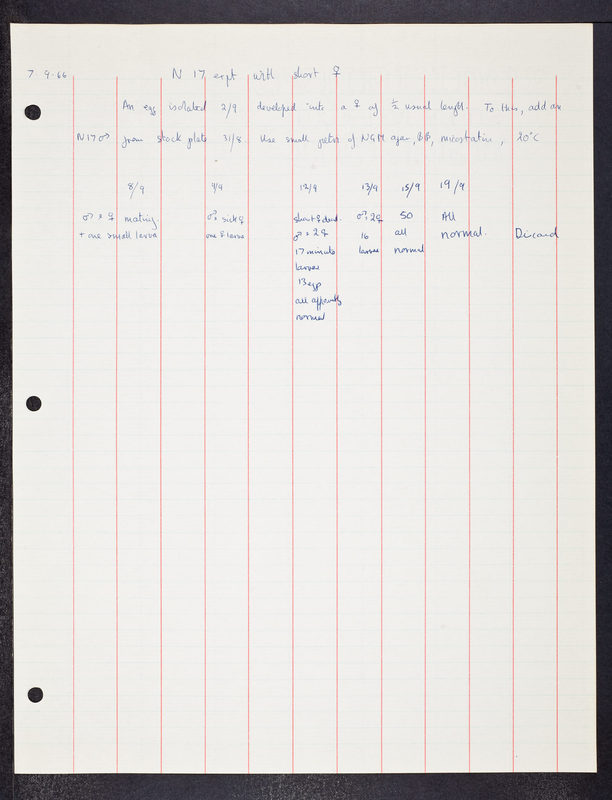 7.9.66 N 17 expt with short ♀
An egg isolated 2/9 developed into a ♀ of ½ usual length. To this, add an
N17 ♂ from stock plate 31/8. Use small petri of NGM agar, mycostatin, 20°C
8/9 9/9 12/9 13/9 15/9 19/9
♂ + ♀ mating. ♂, sick ♀ short ♀ dead. ♂, 2♀ 50 All
+ one small larva one larva ♂ + 2 ♀ 16 all normal. Discard
17 minute larvae normal
larvae
13 eggs
all apparently
normal